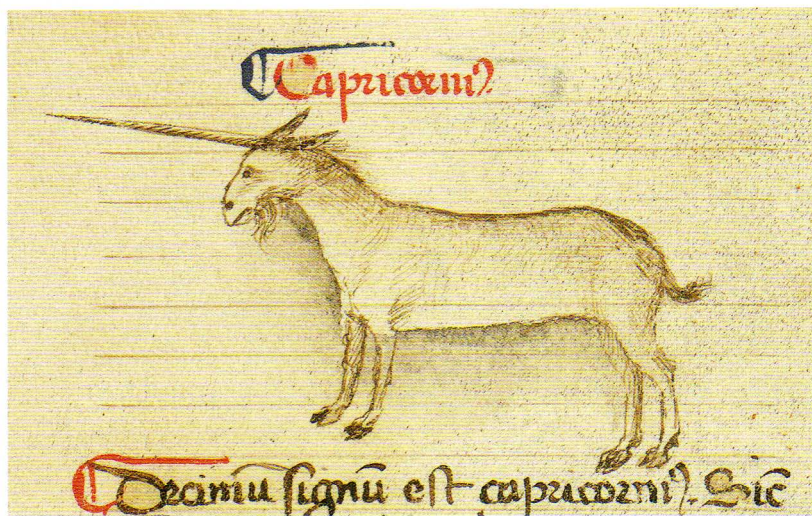 ¶ Capricorniꝰ
¶ Decimū signū est capricorniꝰ. Sic